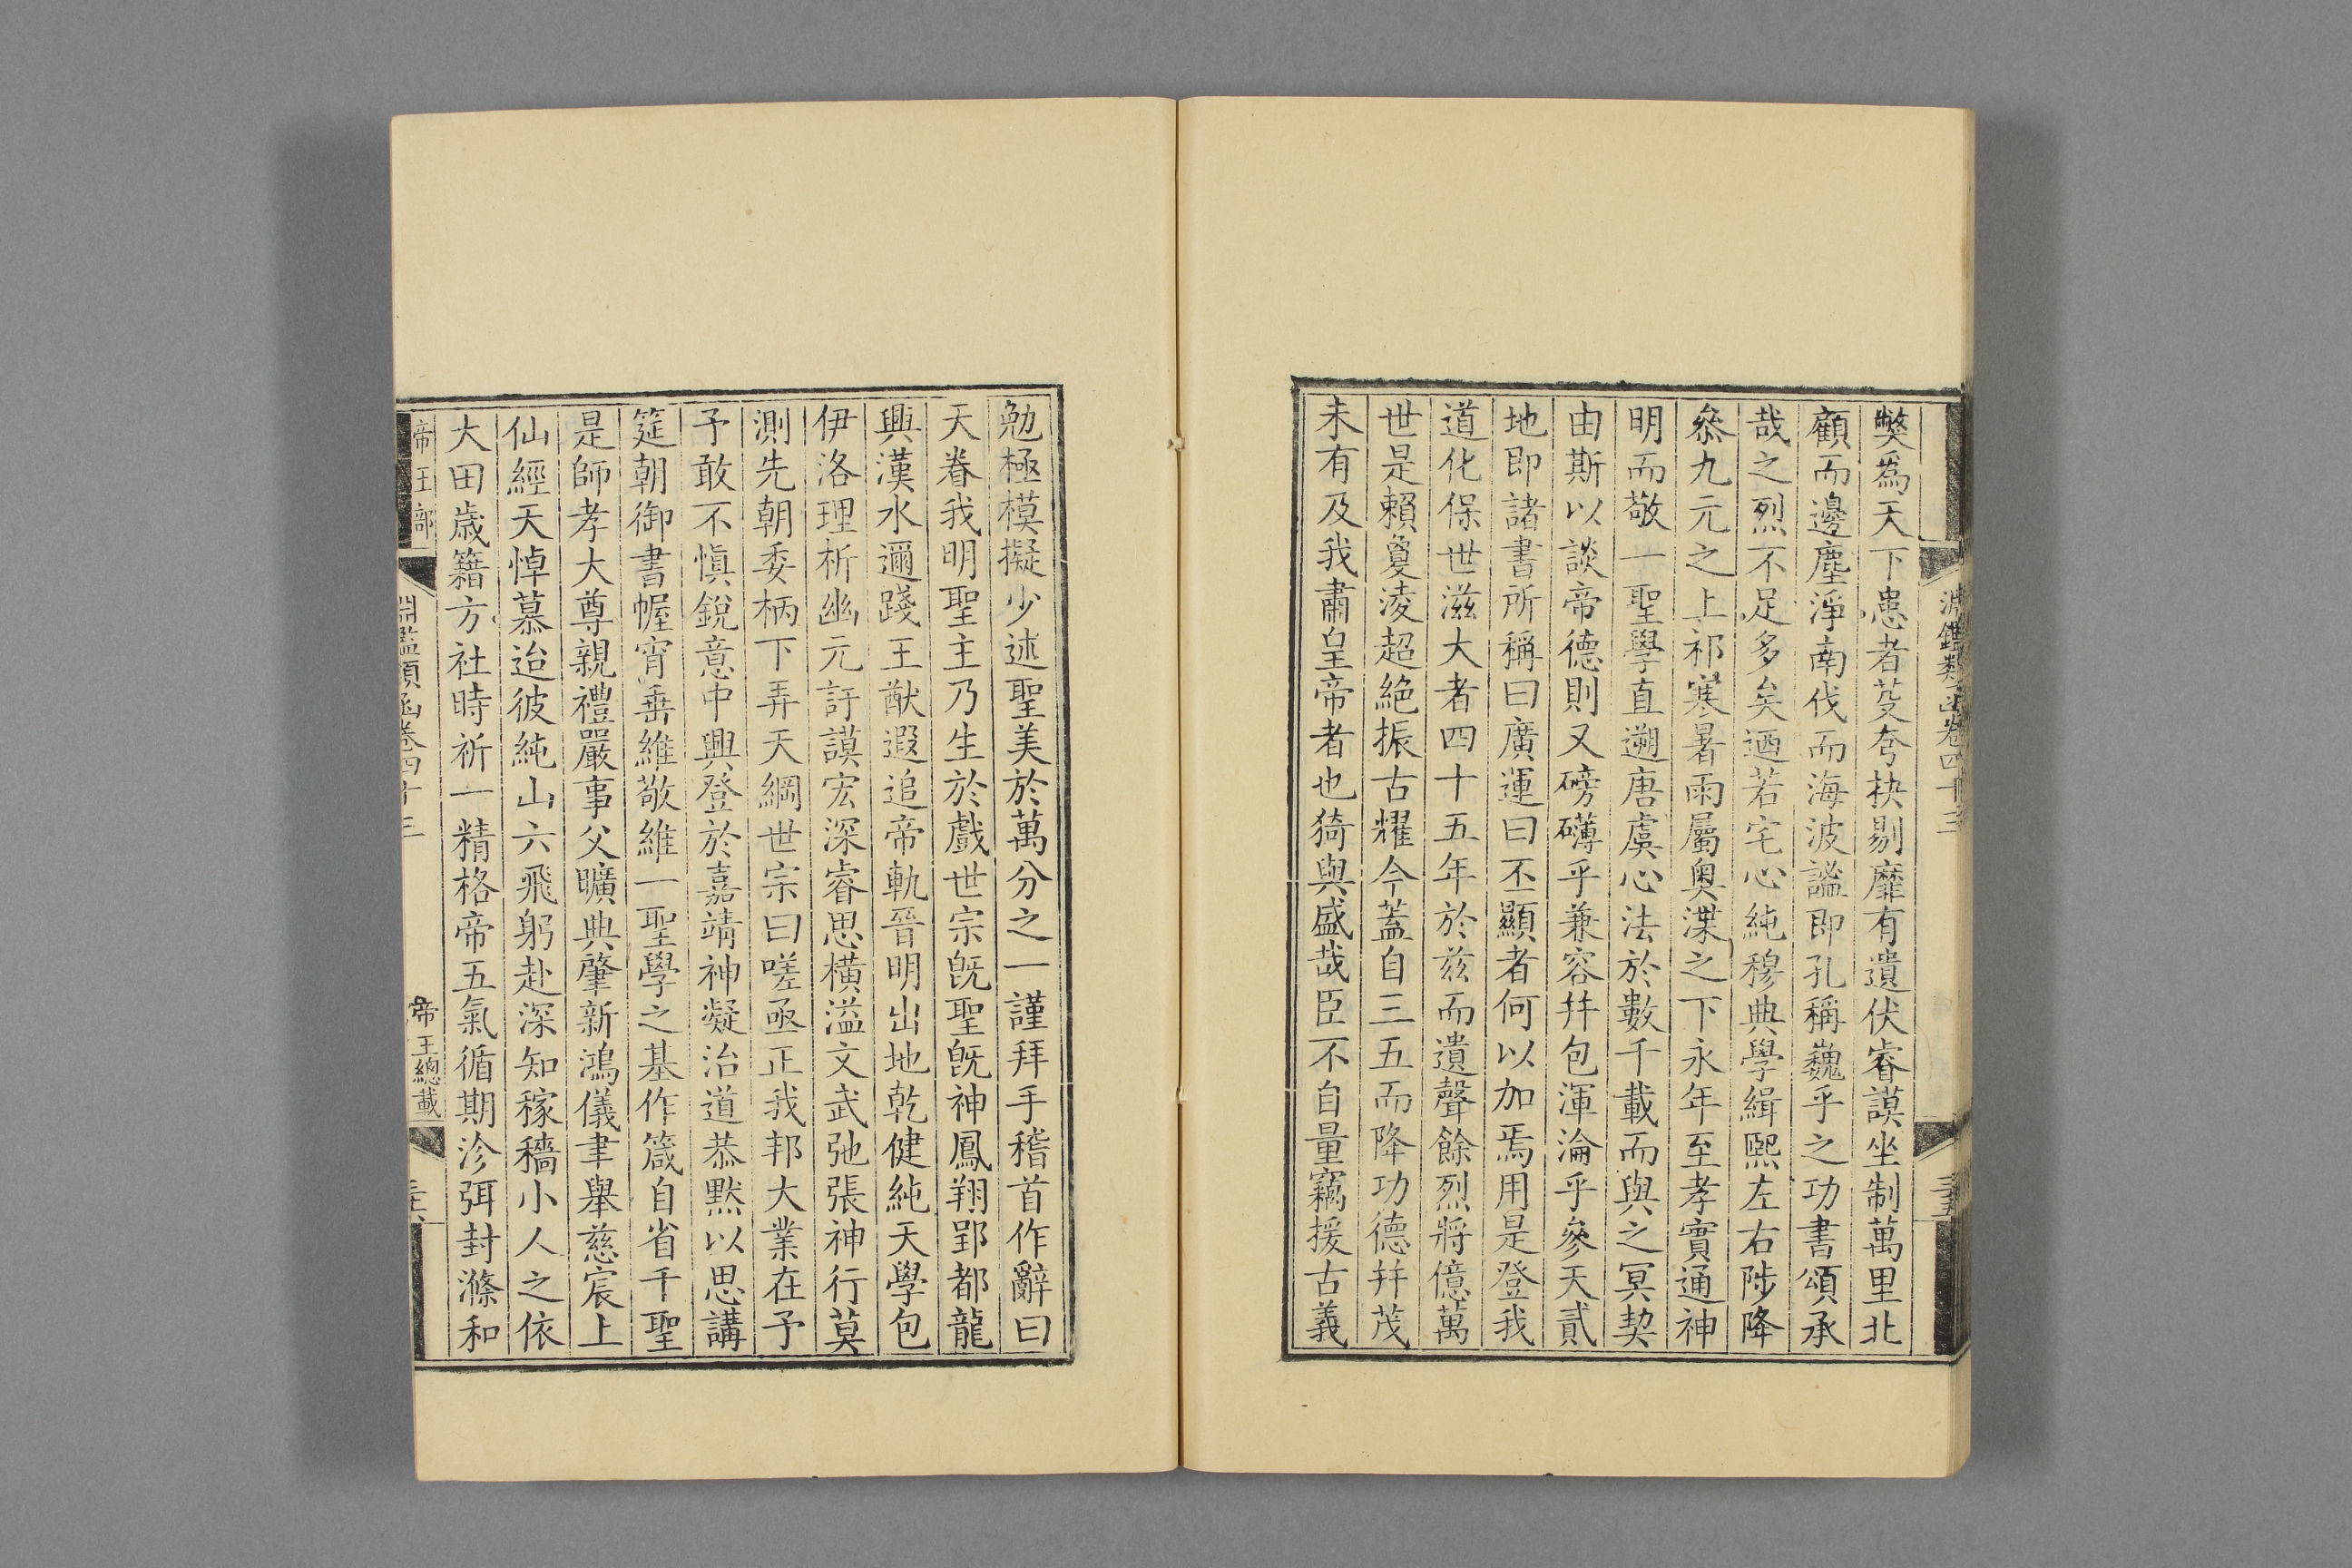 淵鑑類函卷四十三
三十五
弊為天下患者芟夸抉剔靡有遺伏睿謨坐制萬里北
顧而邊塵淨南伐而海波謐即孔稱巍乎之功書頌承
哉之烈不足多矣迺若宅心純穆典學緝熙左右陟降
叅九元之上祁寒暑雨屬奧渫之下永年至孝實通神
明而敬一聖學直遡唐虞心法於數千載而與之冥契
由斯以談帝德則又磅礴乎兼容幷包渾淪乎參天貳
地即諸書所稱曰廣運曰丕顯者何以加焉用是登我
道化保世滋大者四十五年於茲而遺聲餘烈將億萬
世是賴敻淩超絕振古耀今蓋自三五而降功德幷茂
未有及我肅皇帝者也猗與盛哉臣不自量竊援古義
勉極模擬少述聖美於萬分之一謹拜手稽首作辭曰
天眷我明聖主乃生於戲世宗旣聖旣神鳳翔郢都龍
興漢水邇踐王猷遐追帝軌晉明出地乾健純天學包
伊洛理析幽元訏謨宏深睿思橫溢文武弛張神行莫
測先朝委柄下弄天綱世宗曰嗟亟正我邦大業在予
予敢不愼銳意中興登於嘉靖神凝治道恭默以思講
筵朝御書幄宵垂維敬維一聖學之基作箴自省千聖
是師孝大尊親禮嚴事父曠典肇新鴻儀聿舉慈宸上
仙經天悼慕迨彼純山六飛躬赴深知稼穡小人之依
大田歲籍方社時祈一精格帝五氣循期沴弭封滌和
帝王部
淵鑑類函卷四十三
帝王總載
三十六